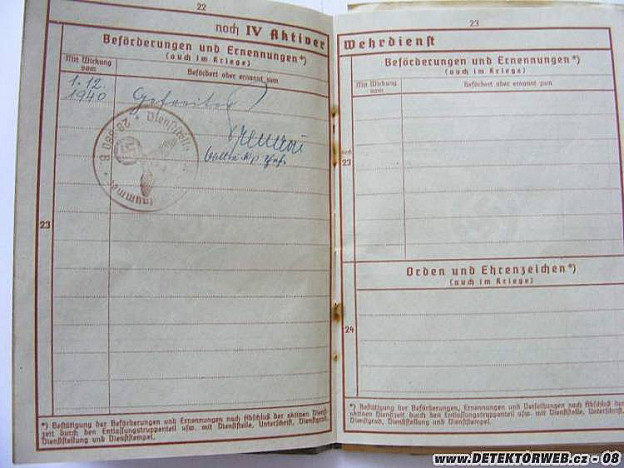 22
noch IV Aktiver
Beförderungen und Ernennungen*)
(auch im Kriege)
Mit Wirkung vom
Befördert oder ernannt zum
1.12.
1940
Gefreiter
Dienststelle
23
*) Bestätigung der Beförderungen und Ernennungen nach Abschluß der aktiven Dienst-
zeit durch den Entlassungstruppenteil usw. mit Dienststelle, Unterschrift, Dienstgrad,
Dienststellung und Dienststempel.
23
Wehrdienst
Beförderungen und Ernennungen*)
(auch im Kriege)
Mit Wirkung vom
Befördert oder ernannt zum
noch
23
Orden und Ehrenzeichen*)
(auch im Kriege)
24
*) Bestätigung der Beförderungen, Ernennungen und Verleihungen nach Abschluß der
aktiven Dienstzeit durch den Entlassungstruppenteil usw. mit Dienststelle, Unterschrift,
Dienstgrad, Dienststellung und Dienststempel.
www.DETEKTORWEB.cz - 08